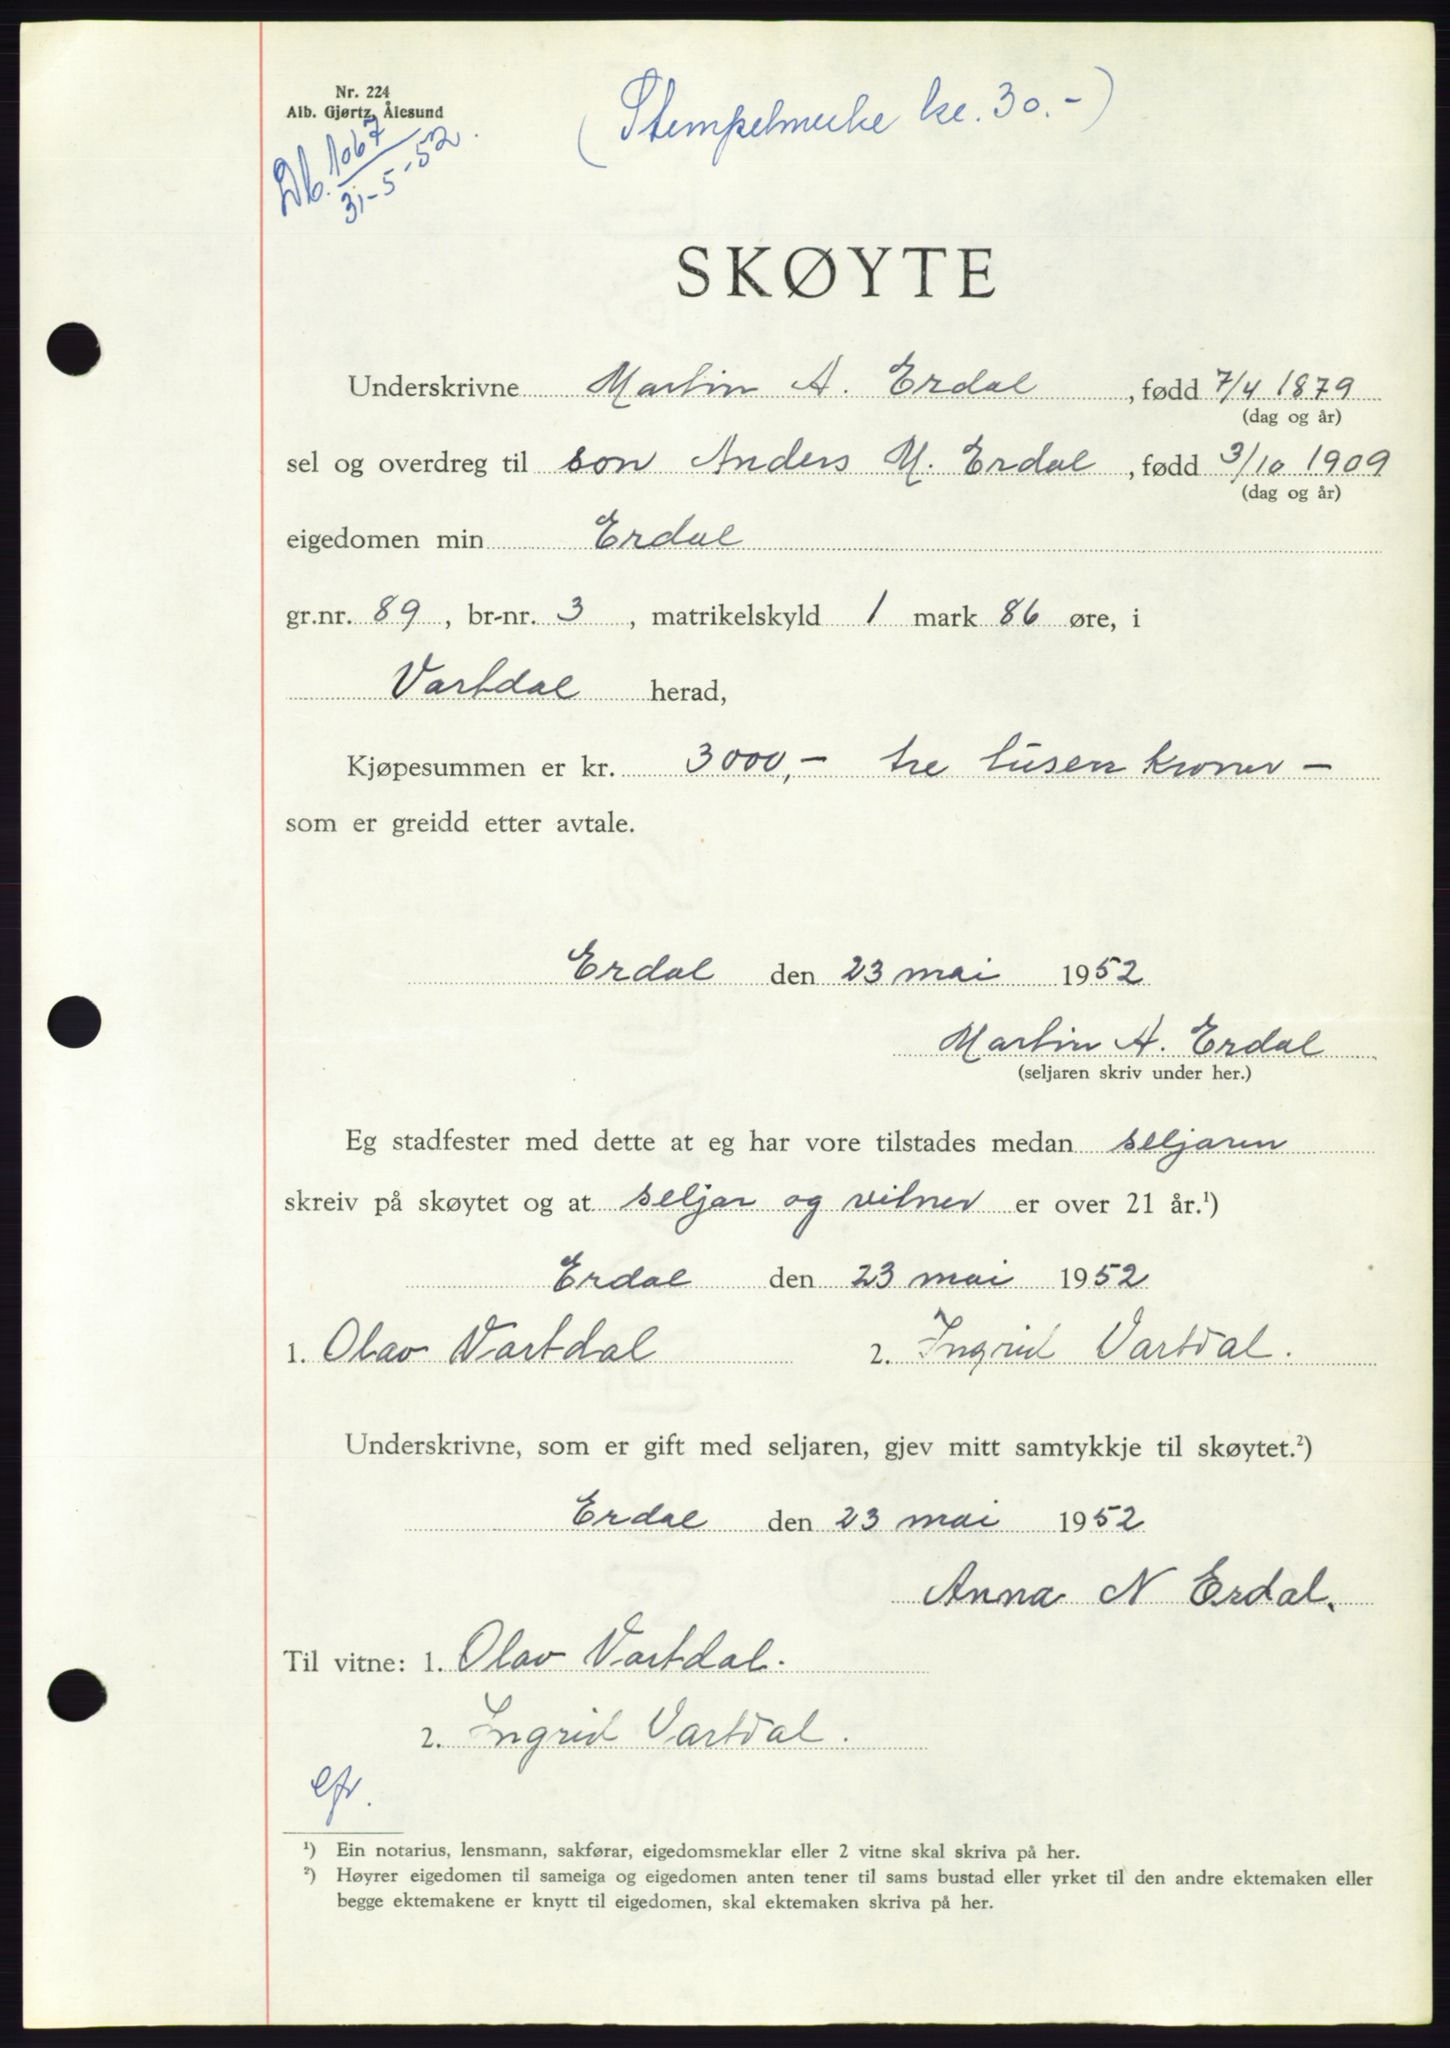 Nr. 224
Alb. Gjørtz, Ålesund
(Stempelmerke kr. 30.-)
Db. 1067
31-5-52.
SKØYTE
Underskrivne Martin A. Erdal, fødd 7/4 1879
(dag og år)
sel og overdreg til son Anders M. Erdal, fødd 3/10 1909
(dag og år)
eigedomen min Erdal
gr.nr. 89, br-nr. 3, matrikelskyld 1 mark 86 øre, i
Vartdal herad,
Kjøpesummen er kr. 3000,- tre tusen kroner -
som er greidd etter avtale.
Erdal den 23 mai 1952
Martin A. Erdal
(seljaren skriv under her.)
Eg stadfester med dette at eg har vore tilstades medan seljaren
skreiv på skøytet og at seljar og vitner er over 21 år.¹)
Erdal den 23 mai 1952
1. Olav Vartdal 2. Ingrid Vartdal.
Underskrivne, som er gift med seljaren, gjev mitt samtykkje til skøytet.²)
Erdal den 23 mai 1952
Anna N Erdal.
Til vitne: 1. Olav Vartdal.
2. Ingrid Vartdal.
¹) Ein notarius, lensmann, sakførar, eigedomsmeklar eller 2 vitne skal skriva på her.
²) Høyrer eigedomen til sameiga og eigedomen anten tener til sams bustad eller yrket til den andre ektemaken eller
begge ektemakene er knytt til eigedomen, skal ektemaken skriva på her.